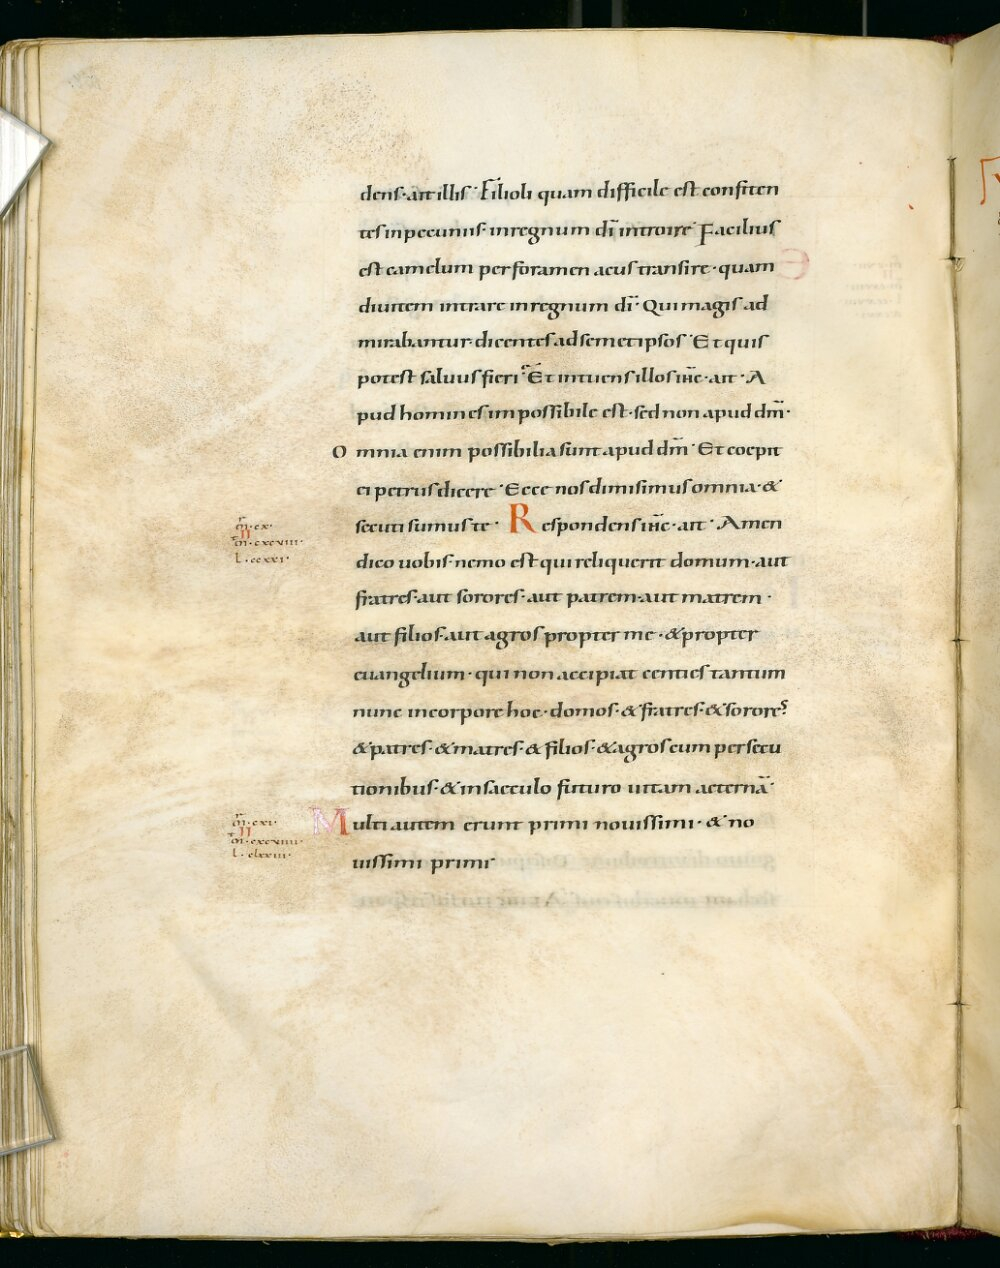 dens· ait illis· Filioli quam difficile est confiten
tes in pecuniis· in regnum dī introire· Facilius
est camelum per foramen acus transire· quam
diuitem intrare in regnum dī· Qui magis ad
mirabantur· dicentes ad semetipsos· Et quis
potest saluus fieri· Et intuens illos iħc· ait· A
pud homines impossibile est· sed non apud dm̄·
Omnia enim possibilia sunt apud dm̄· Et coepit
ei petrus dicere· Ecce nos dimisimus omnia· &
secuti sumus te· Respondens iħc· ait· Amen
dico uobis· nemo est qui reliquerit domum· aut
fratres· aut sorores· aut patrem· aut matrem·
aut filios· aut agros propter me· & propter
euangelium· qui non accipiat centies tantum
nunc in corpore hoc· domos· & fratres· & sorores
& patres· & matres· & filios· & agros cum persecu
tionibus· & in saeculo futuro uitam aeternā·
Multi autem erunt primi nouissimi· & no
uissimi primi·
m̄· cx·
II
m̄· cxcviii·
l· ccxxi·
m̄· cxi·
II
m̄· cxcviiii·
l· clxxiii·